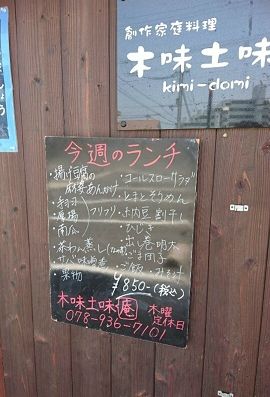 創作家庭料理
木味土味
kimi-domi
今週のランチ
・揚げ豆腐の
麻婆あんかけ
・コールスローサラダ
・とまとそうめん
厚揚
フリフリ
・南瓜
・茶わん蒸し
・果物
・ひじき
・出し巻 明太
・ごま団子
・ご飯 みそ汁
¥850-(税込)
木味土味庵
木曜
定休日
078-936-7101